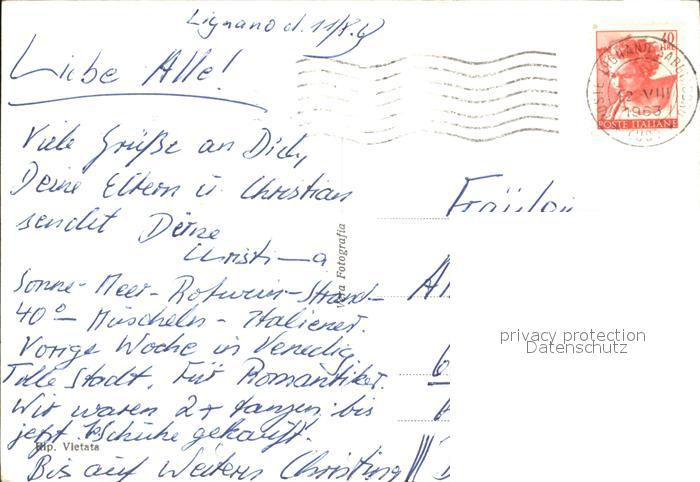 Lignano d. 11/8.63
Liebe Alle!
Viele Grüße an Dich,
Deine Eltern u. Christian
sendet Deine
Christi—a
Sonne - Meer - Rotwein - Strand -
40° - Muscheln - Italiener.
Vorige Woche in Venedig,
Tolle Stadt. Für Romantiker.
Wir waren 2x tanzen, bis
jetzt Schuhe gekauft.
Bis auf Weiteres Christina
Rip. Vietata
Vera Fotografia
40
12 VIII
1963
POSTE ITALIANE
Fräulein
A
6
privacy protection
Datenschutz